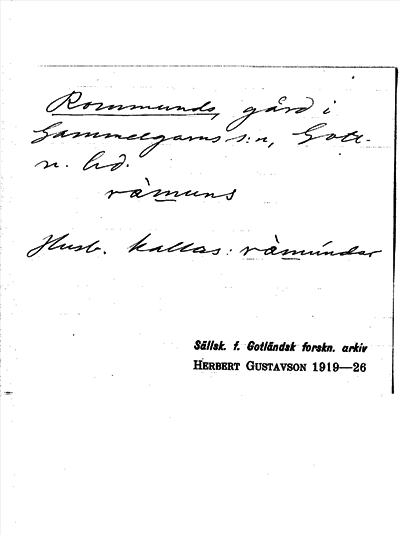 Rommunds, gård i
Gammelgarns s:n, Gotl.
n. hd.
ràmuns
Husb. kallas: ràmúndar
Sällsk. f. Gotländsk forskn. arkiv
HERBERT GUSTAVSON 1919—26